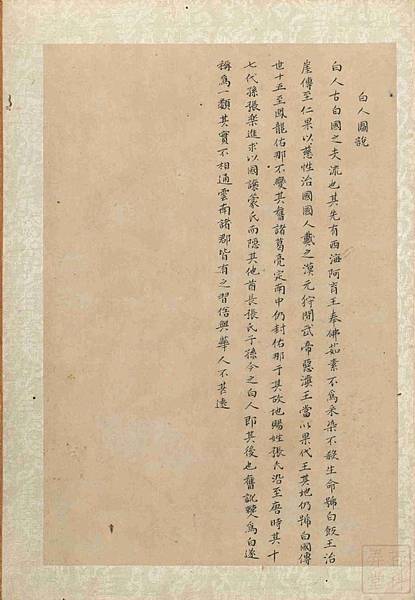 白人圖說
白人古白國之支流也其先有西海阿育王奉佛茹素不為采染不殺生命號白飯王治
崖傳至仁果以慈性治國國人戴之漢元狩間武帝惡滇王當以果代王其地仍號白國傳
世十五至鳳龍佑那不變其舊諸葛亮定南中仍封佑那于其故地賜姓張氏沿至唐時其十
七代孫張樂進求以國讓蒙氏而隱其他酋長張氏子孫今之白人即其後也舊訛僰為白遂
稱為一類其實不相通雲南諸郡皆有之習俗與華人不甚遠